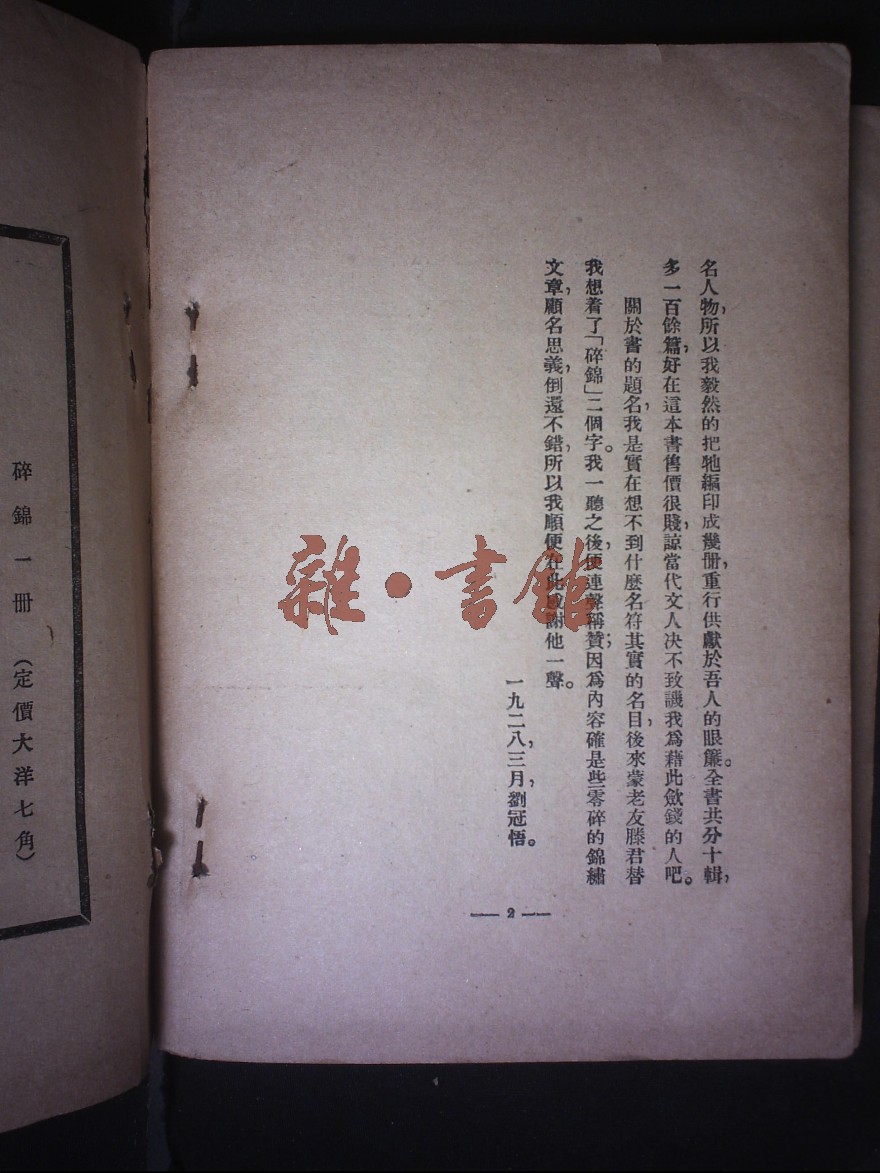 名人物，所以我毅然的把牠編印成幾册，重行供獻於吾人的眼簾。全書共分十輯，
多一百餘篇，好在這本書售價很賤，諒當代文人决不致譏我爲藉此斂錢的人吧。
關於書的題名，我是實在想不到什麼名符其實的名目，後來蒙老友滕君替
我想着了「碎錦」二個字。我一聽之後，便連聲稱贊；因爲內容確是些零碎的錦繡
文章，顧名思義，倒還不錯，所以我順便在此感謝他一聲。
一九二八，三月，劉冠悟。
— 2 —
碎錦一册 （定價大洋七角）
雜·書館